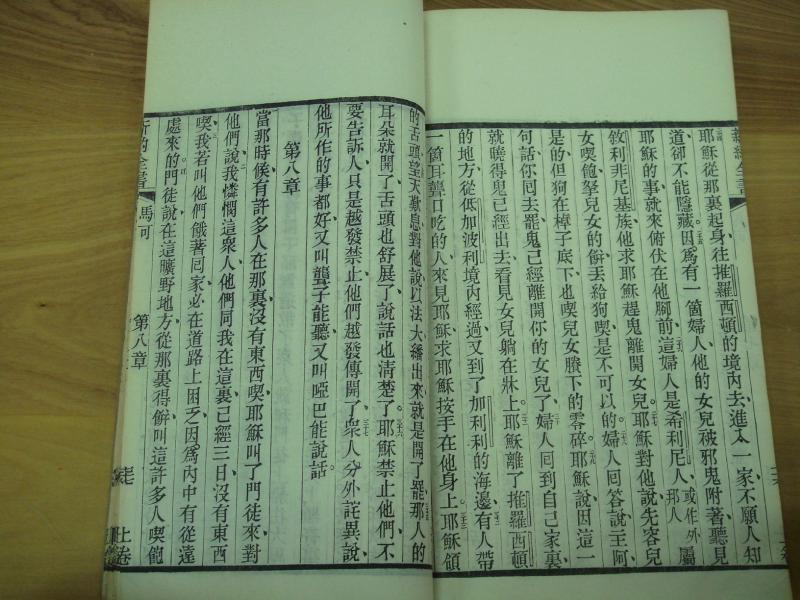 新約全書
耶穌從那裏起身、往推羅西頓的境內去、進入一家、不願人知
道、卻不能隱藏。因爲有一箇婦人、他的女兒被邪鬼附著、聽見
耶穌的事、就來俯伏在他腳前。這婦人是希利尼人、或作外邦人屬
敘利非尼基族、他求耶穌趕鬼離開女兒。耶穌對他說、先容兒
女喫飽、拏兒女的餅丟給狗喫、是不可以的。婦人回答說、主阿、
是的、但狗在棹子底下、也喫兒女賸下的零碎。耶穌說、因這一
句話、你回去罷、鬼已經離開你的女兒了。婦人回到自己家裏、
就瞧得鬼已經出去、看見女兒躺在牀上。耶穌離了推羅西頓
的地方、從低加波利境內經過、又到了加利利的海邊。有人帶
一箇耳聾口吃的人、來見耶穌、求耶穌按手在他身上。耶穌領
的舌頭、望天歎息、對他說、以法大、繙出來就是開了罷。那人的
耳朵就開了、舌頭也舒展了、說話也清楚了。耶穌禁止他們、不
要告訴人、只是越發禁止他們、越發傳開了。衆人分外詫異、說、
他所作的事都好、又叫聾子能聽、又叫啞巴能說話。
第八章
當那時候、有許多人在那裏、沒有東西喫、耶穌叫了門徒來、對
他們說、我憐憫這衆人、他們同我在這裏、已經三日、沒有東西
喫、我若叫他們餓著回家、必在道路上困乏、因爲內中有從遠
處來的。門徒說、在這曠野地方、從那裏得餅、叫這許多人喫飽
新約全書
馬可
第八章
上卷